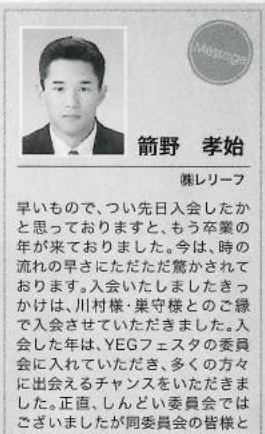 Message
箭野 孝始
㈱レリーフ
早いもので、つい先日入会したか
と思っておりますと、もう卒業の
年が来ておりました。今は、時の
流れの早さにただただ驚かされて
おります。入会いたしましたきっ
かけは、川村様・巣守様とのご縁
で入会させていただきました。入
会した年は、YEGフェスタの委員
会に入れていただき、多くの方々
に出会えるチャンスをいただきま
した。正直、しんどい委員会では
ございましたが同委員会の皆様と